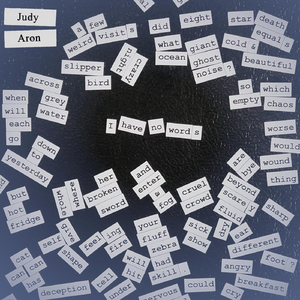 Judy
Aron
a few
weird visits
did
eight
star death
equals
what
ocean
giant
ghost
noise ?
cold &
beautiful
slipper
bird
crazy
night
across
grey
water
when
will
each
go
so
empty
which
chaos
worse
would
wound
thing
I have no words
down
to
yesterday
are
bye
beyond
scare y
fluid
sharp
whose
where
her
broken
sword
and
enter
a
fog
cruel
crowd
but
hot
fridge
give
self
shape
feel ing
fire
your
fluff
zebra
sick
show
dry
ear
different
cat
can
has
deception
tell
will
hit
under
had
skill
nervous
could
angry
crab
foot ?
being